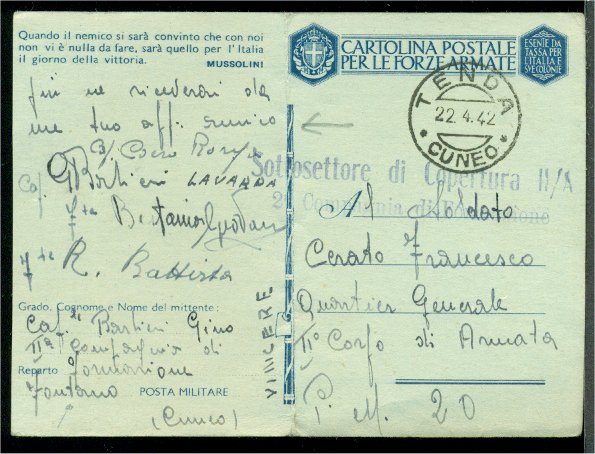 Quando il nemico si sarà convinto che con noi
non vi è nulla da fare, sarà quello per l'Italia
il giorno della vittoria.
MUSSOLINI
CARTOLINA POSTALE
PER LE FORZE ARMATE
ESENTE DA
TASSA PER
L'ITALIA E
SVE COLONIE
TENDA
22.4.42
* CUNEO *
da
me tuo aff. amico
LAVARDA
R. Battista
Sottosettore di Copertura II/A
2ª Compagnia di
Al Soldato
Cerato Francesco
Quartier Generale
IIº Corpo di Armata
P. M. 20
VINCERE
Grado, Cognome e Nome del mittente:
Barbieri Gino
IIª Compagnia di
Reparto Formazione
Fontano POSTA MILITARE
(Cuneo)